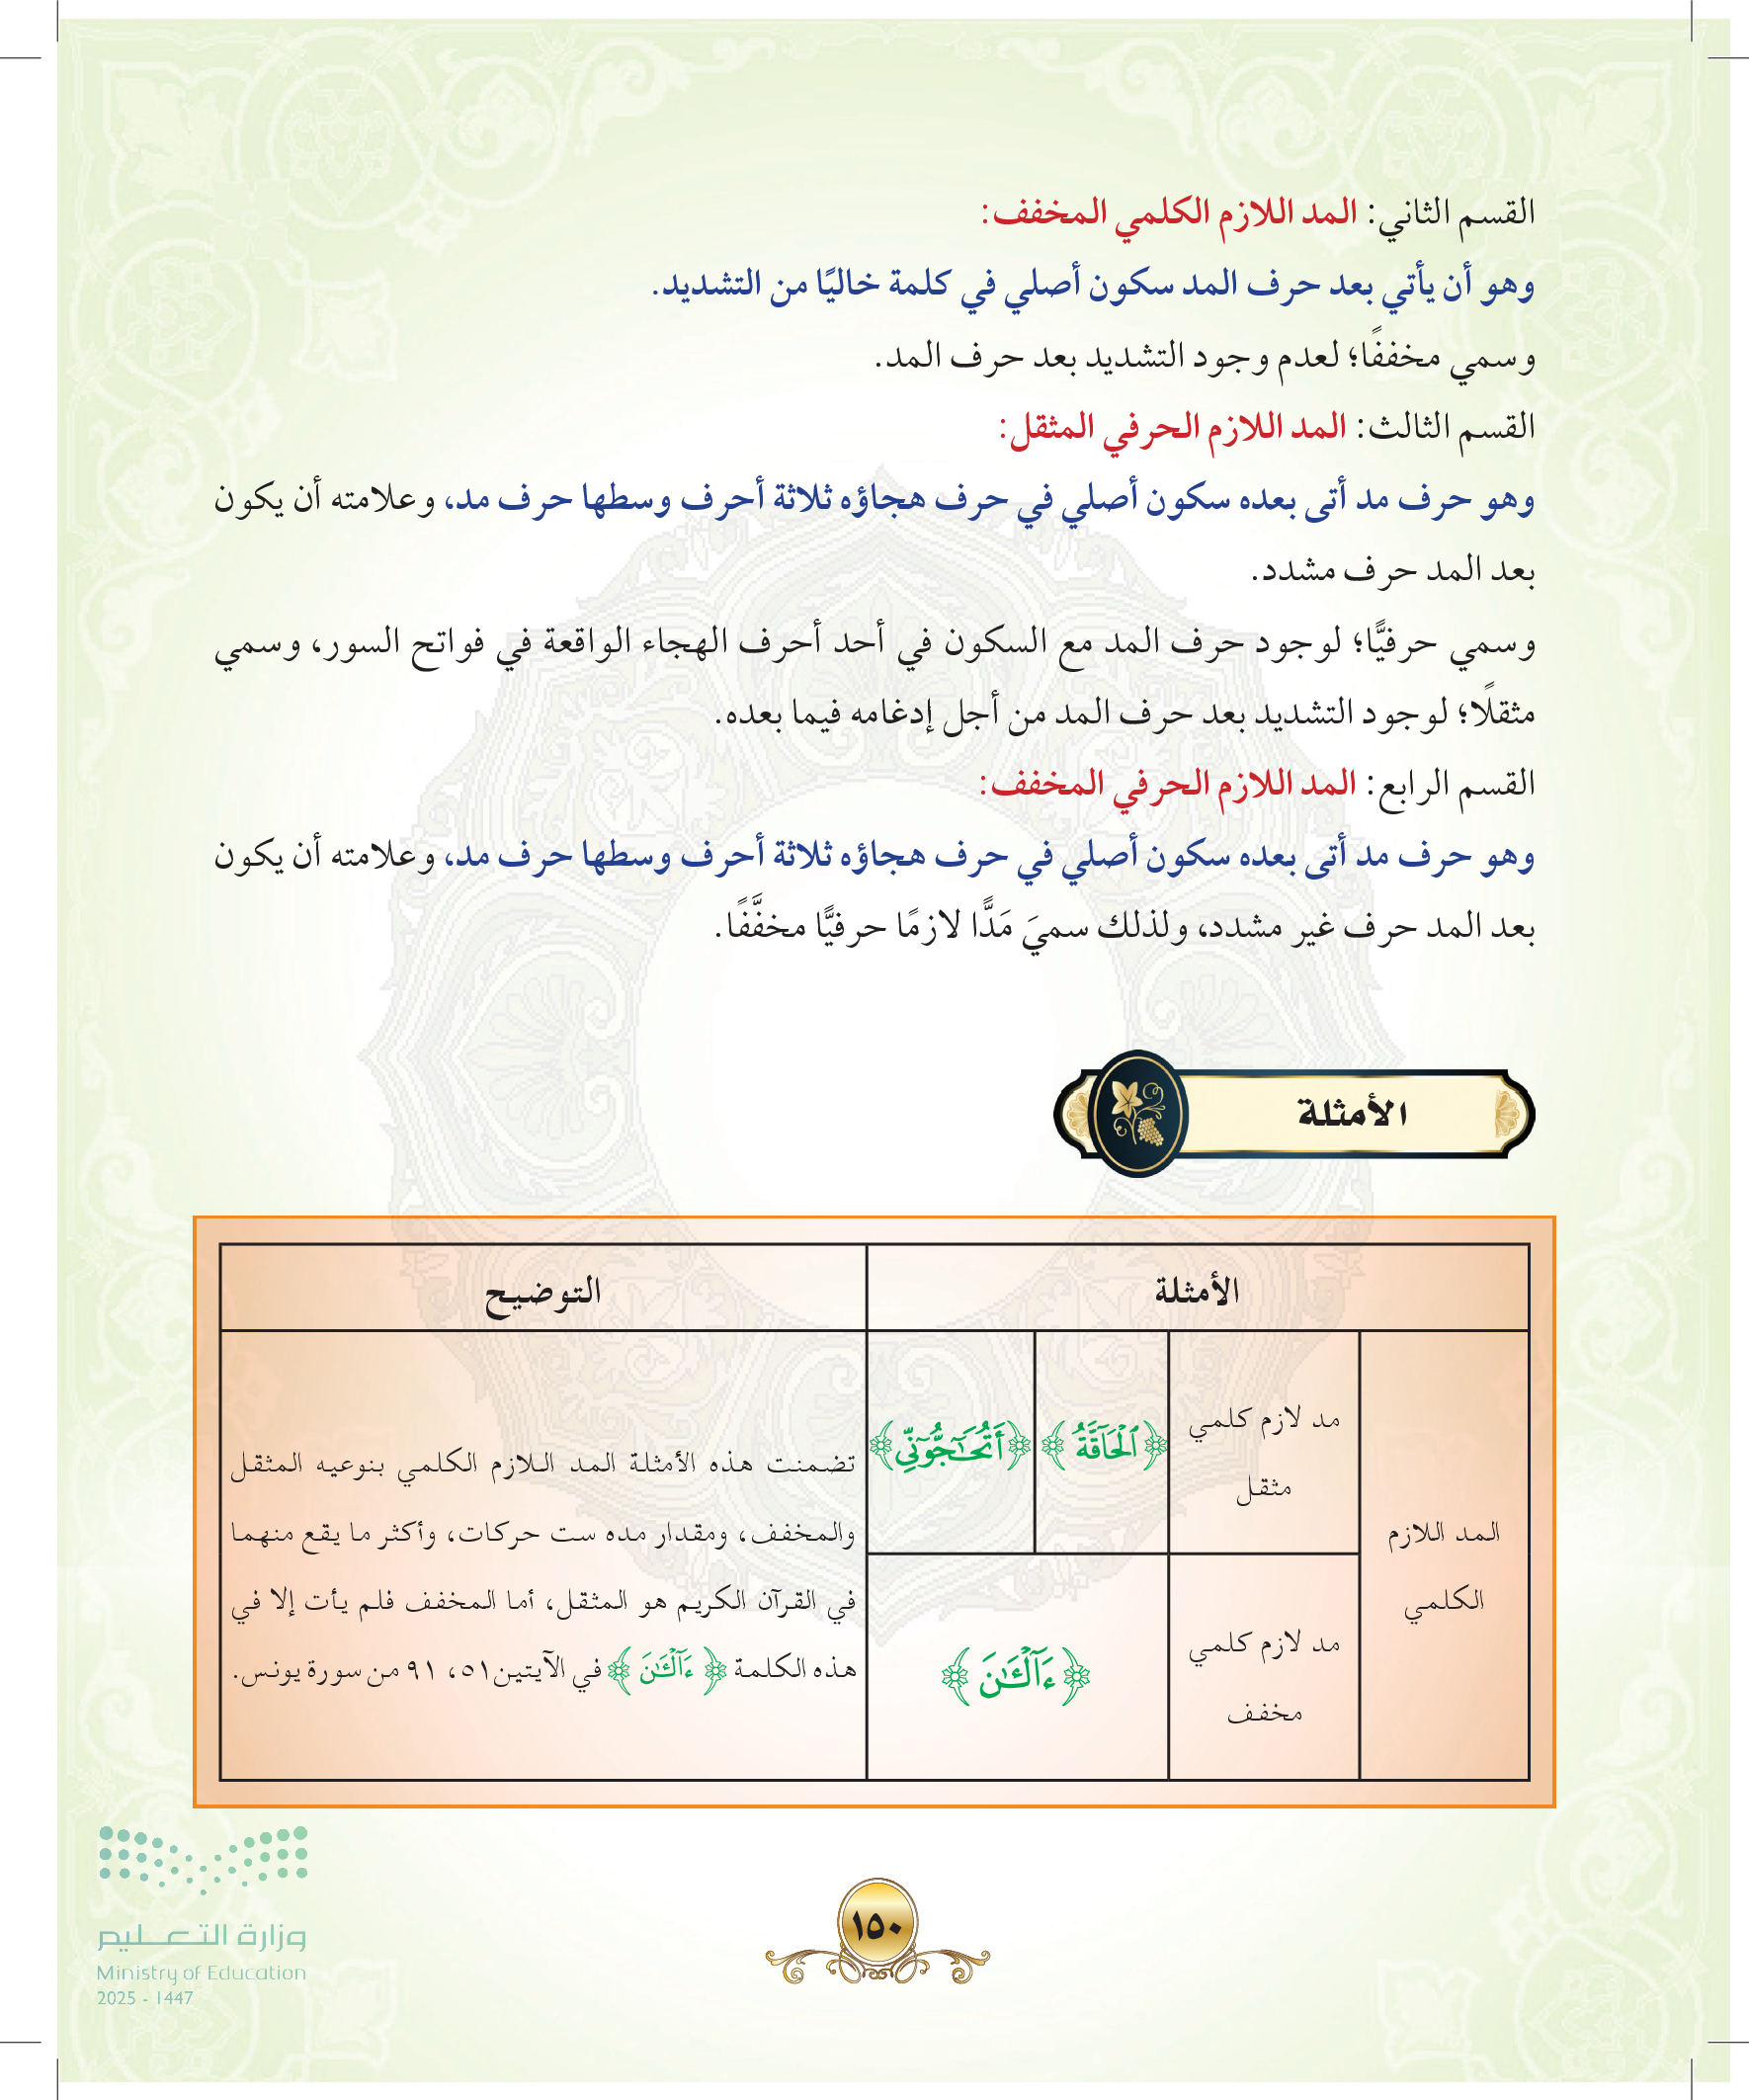 القسم الثاني: المد اللازم الكلمي المخفف:
وهو أن يأتي بعد حرف المد سكون أصلي في كلمة خاليًا من التشديد.
وسمي مخففًا؛ لعدم وجود التشديد بعد حرف المد.
القسم الثالث: المد اللازم الحرفي المثقل:
وهو حرف مد أتى بعده سكون أصلي في حرف هجاؤه ثلاثة أحرف وسطها حرف مد، وعلامته أن يكون
بعد المد حرف مشدد.
وسمي حرفيًّا؛ لوجود حرف المد مع السكون في أحد أحرف الهجاء الواقعة في فواتح السور، وسمي
مثقلًا؛ لوجود التشديد بعد حرف المد من أجل إدغامه فيما بعده.
القسم الرابع: المد اللازم الحرفي المخفف:
وهو حرف مد أتى بعده سكون أصلي في حرف هجاؤه ثلاثة أحرف وسطها حرف مد، وعلامته أن يكون
بعد المد حرف غير مشدد، ولذلك سميَ مَدًّا لازمًا حرفيًّا مخفَّفًا.
الأمثلة
الأمثلة
التوضيح
المد اللازم
الكلمي
مد لازم كلمي
مثقل
﴿ٱلۡحَآقَّةُ﴾
﴿أَتُحَٰٓجُّوٓنِّي﴾
مد لازم كلمي
مخفف
﴿ءَآلۡـَٰٔنَ﴾
تضمنت هذه الأمثلة المد اللازم الكلمي بنوعيه المثقل
والمخفف، ومقدار مده ست حركات، وأكثر ما يقع منهما
في القرآن الكريم هو المثقل، أما المخفف فلم يأت إلا في
هذه الكلمة ﴿ءَآلۡـَٰٔنَ﴾ في الآيتين ٥١، ٩١ من سورة يونس.
وزارة التعليم
Ministry of Education
2025 - 1447
١٥٠